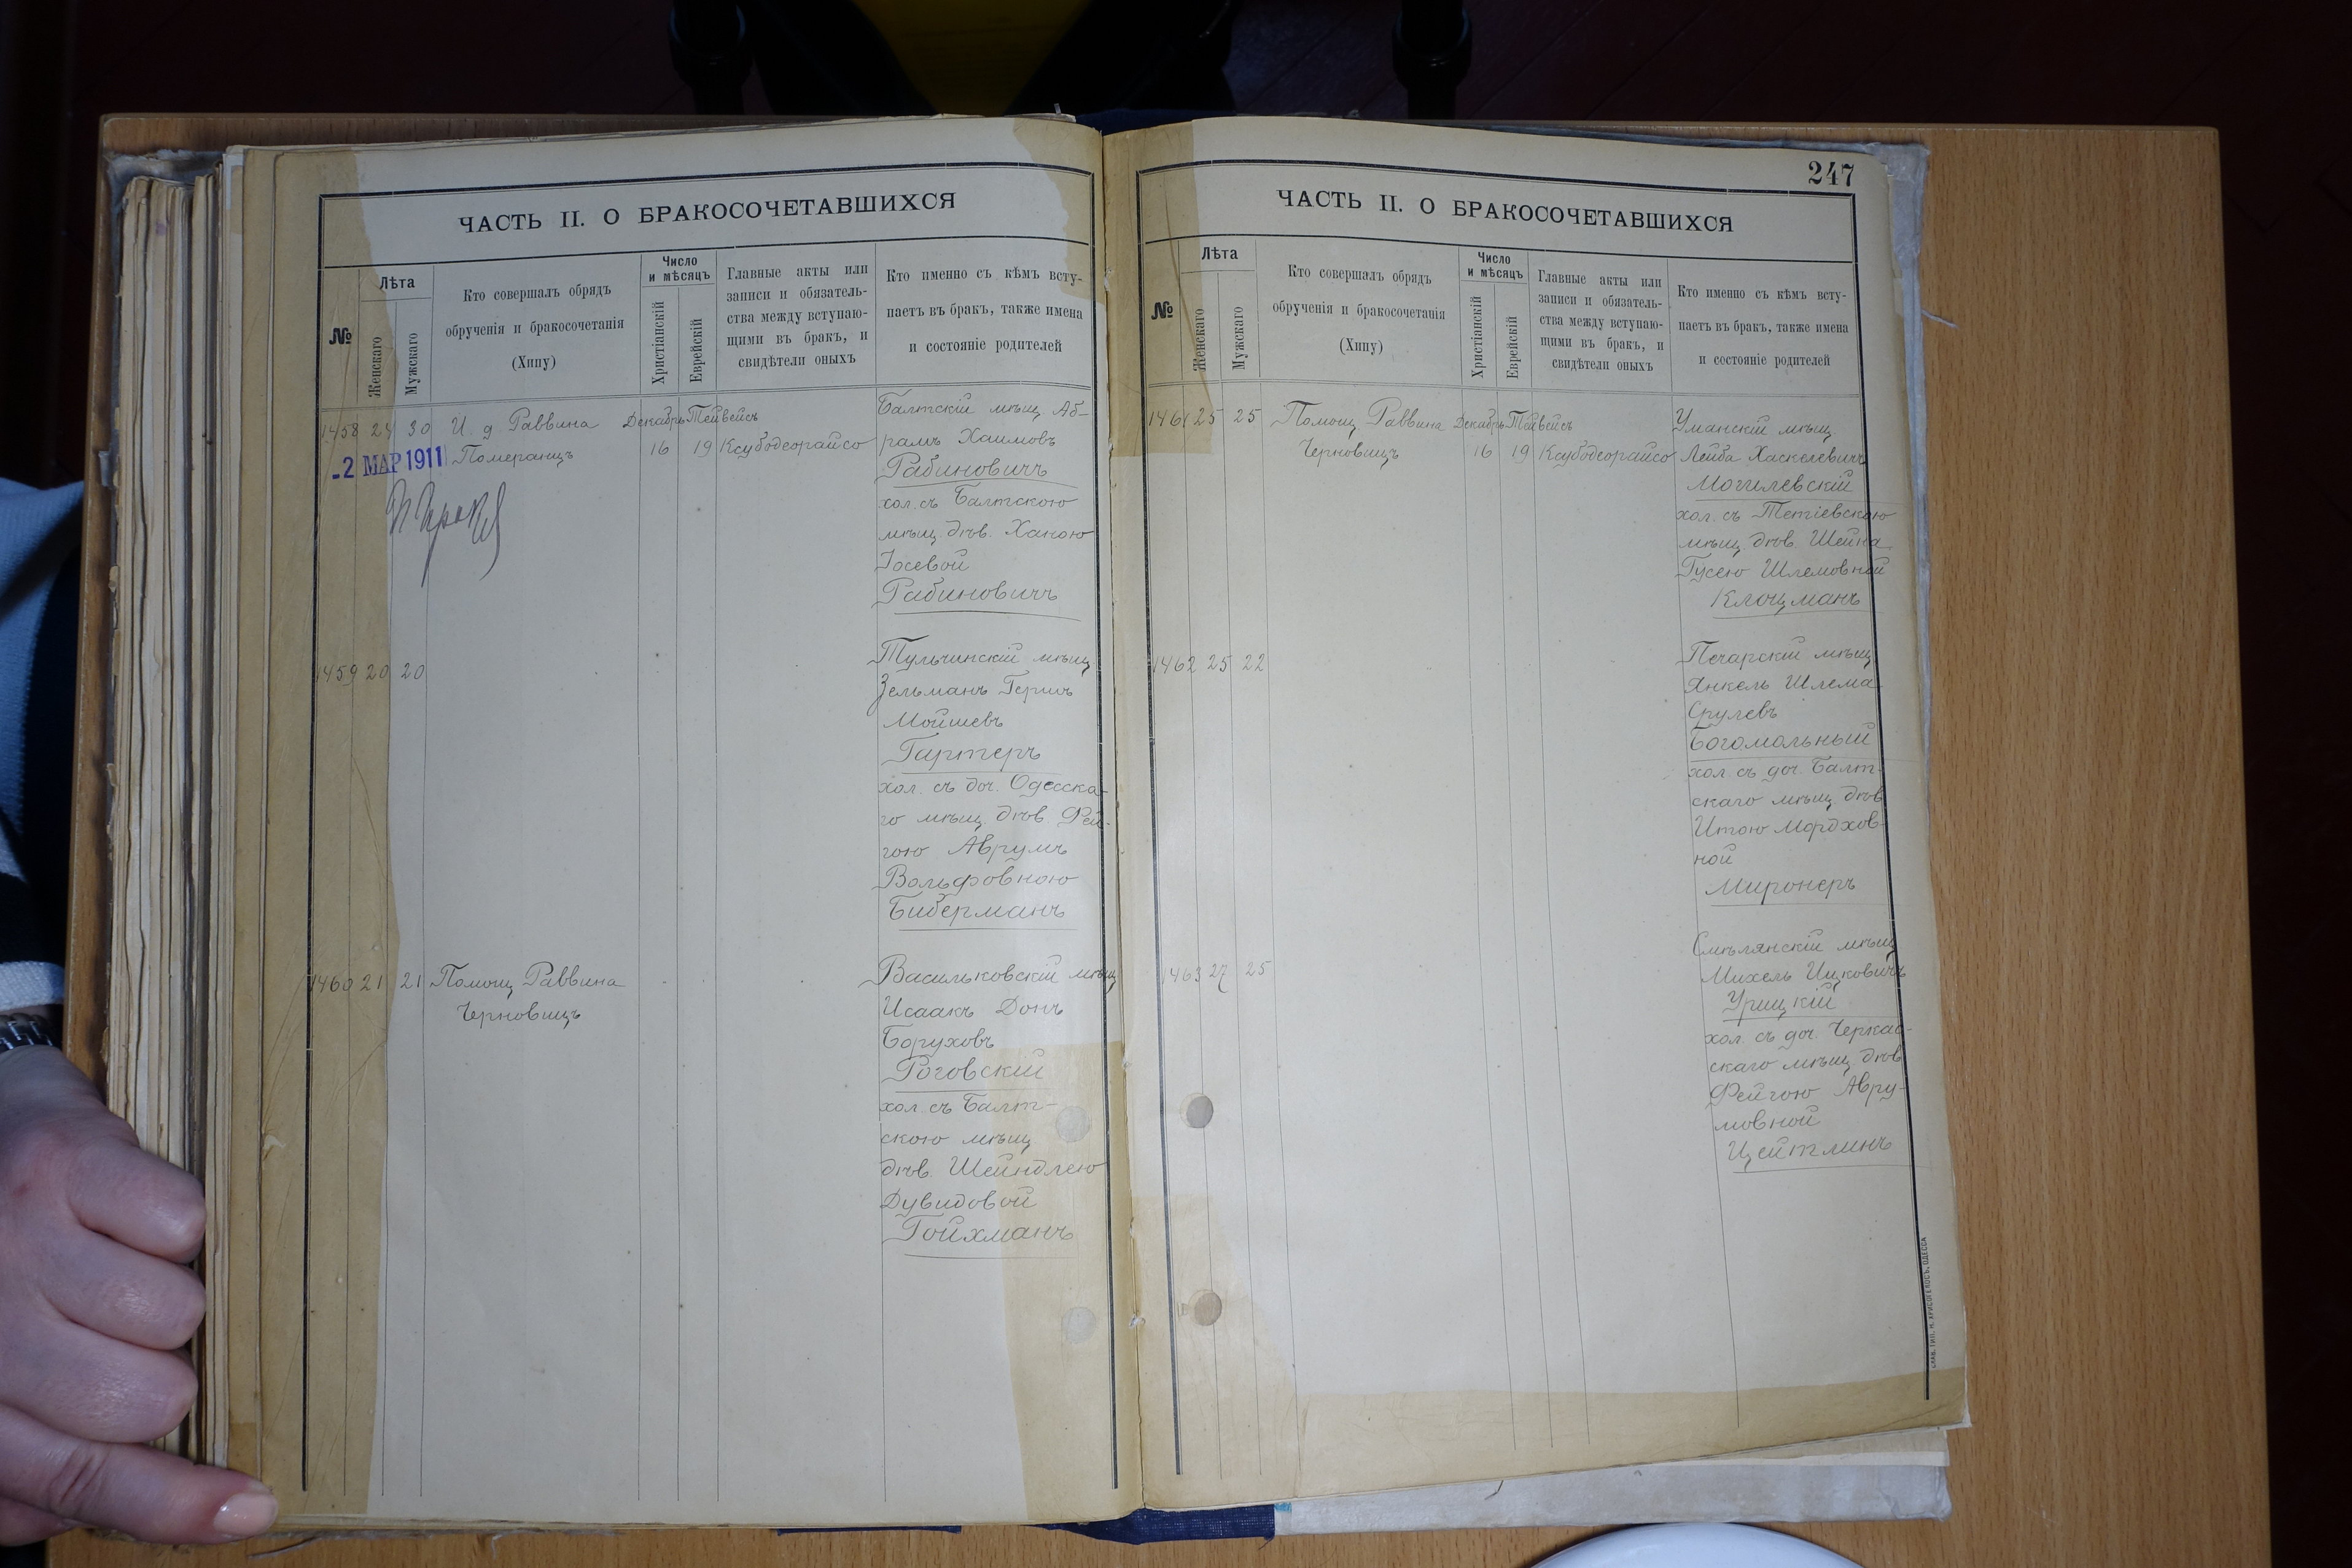 ЧАСТЬ II. О БРАКОСОЧЕТАВШИХСЯ
№
Лѣта
Женскаго
Мужскаго
Кто совершалъ обрядъ
обрученія и бракосочетанія
(Хипу)
Число
и мѣсяцъ
Христіанскій
Еврейскій
Главные акты или
записи и обязатель-
ства между вступаю-
щими въ бракъ, и
свидѣтели оныхъ
Кто именно съ кѣмъ всту-
паетъ въ бракъ, также имена
и состояніе родителей
1458 24 30 И. д. Раввина Декабрь Тейвейсъ
Померанцъ 16 19 Ксубодеорайсо
-2 МАР 1911
Балтскій мѣщ. Аб-
рамъ Хаимовъ
Рабиновичъ
хол. съ Балтскою
мѣщ. дѣв. Ханою
Іосевой
Рабиновичъ
1459 20 20
Тульчинскій мѣщ.
Зельманъ Гершъ
Мойшевъ
Гартеръ
хол. съ доч. Одесска-
го мѣщ. дѣв. Рей-
гою Аврумъ
Вольфовною
Биберманъ
1460 21 21 Помощ. Раввина
Черновицъ
Васильковскій мѣщ.
Исаакъ Донъ
Боруховъ
Роговскій
хол. съ Балт-
скою мѣщ.
дѣв. Шейндлею
Дувидовой
Гойхманъ
247
ЧАСТЬ II. О БРАКОСОЧЕТАВШИХСЯ
№
Лѣта
Женскаго
Мужскаго
Кто совершалъ обрядъ
обрученія и бракосочетанія
(Хипу)
Число
и мѣсяцъ
Христіанскій
Еврейскій
Главные акты или
записи и обязатель-
ства между вступаю-
щими въ бракъ, и
свидѣтели оныхъ
Кто именно съ кѣмъ всту-
паетъ въ бракъ, также имена
и состояніе родителей
1461 25 25 Помощ. Раввина Декабрь Тейвейсъ
Черновицъ 16 19 Ксубодеорайсо
Уманскій мѣщ.
Лейба Хаскелевичъ
Могилевскій
хол. съ Тетіевскою
мѣщ. дѣв. Шейна
Гусею Шлемовной
Клоцманъ
1462 25 22
Печарскій мѣщ.
Янкель Шлема
Срулевъ
Богомольный
хол. съ доч. Балт-
скаго мѣщ. дѣв.
Итою Мордхов-
ной
Миронеръ
1463 27 25
Смѣлянскій мѣщ.
Михель Ицковичъ
Урицкій
хол. съ доч. Черкас-
скаго мѣщ. дѣв.
Фейгою Авру-
мовной
Цейтлинъ
СЛАВ. ТИП. М. ХРИСОГЕЛОСЪ, ОДЕССА